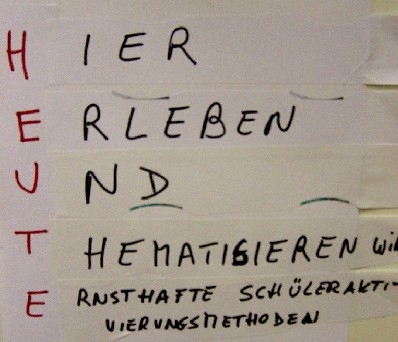 HIER
ERLEBEN
UND
THEMATISIEREN
ERNSTHAFTE SCHÜLERAKTI-
VIERUNGSMETHODEN